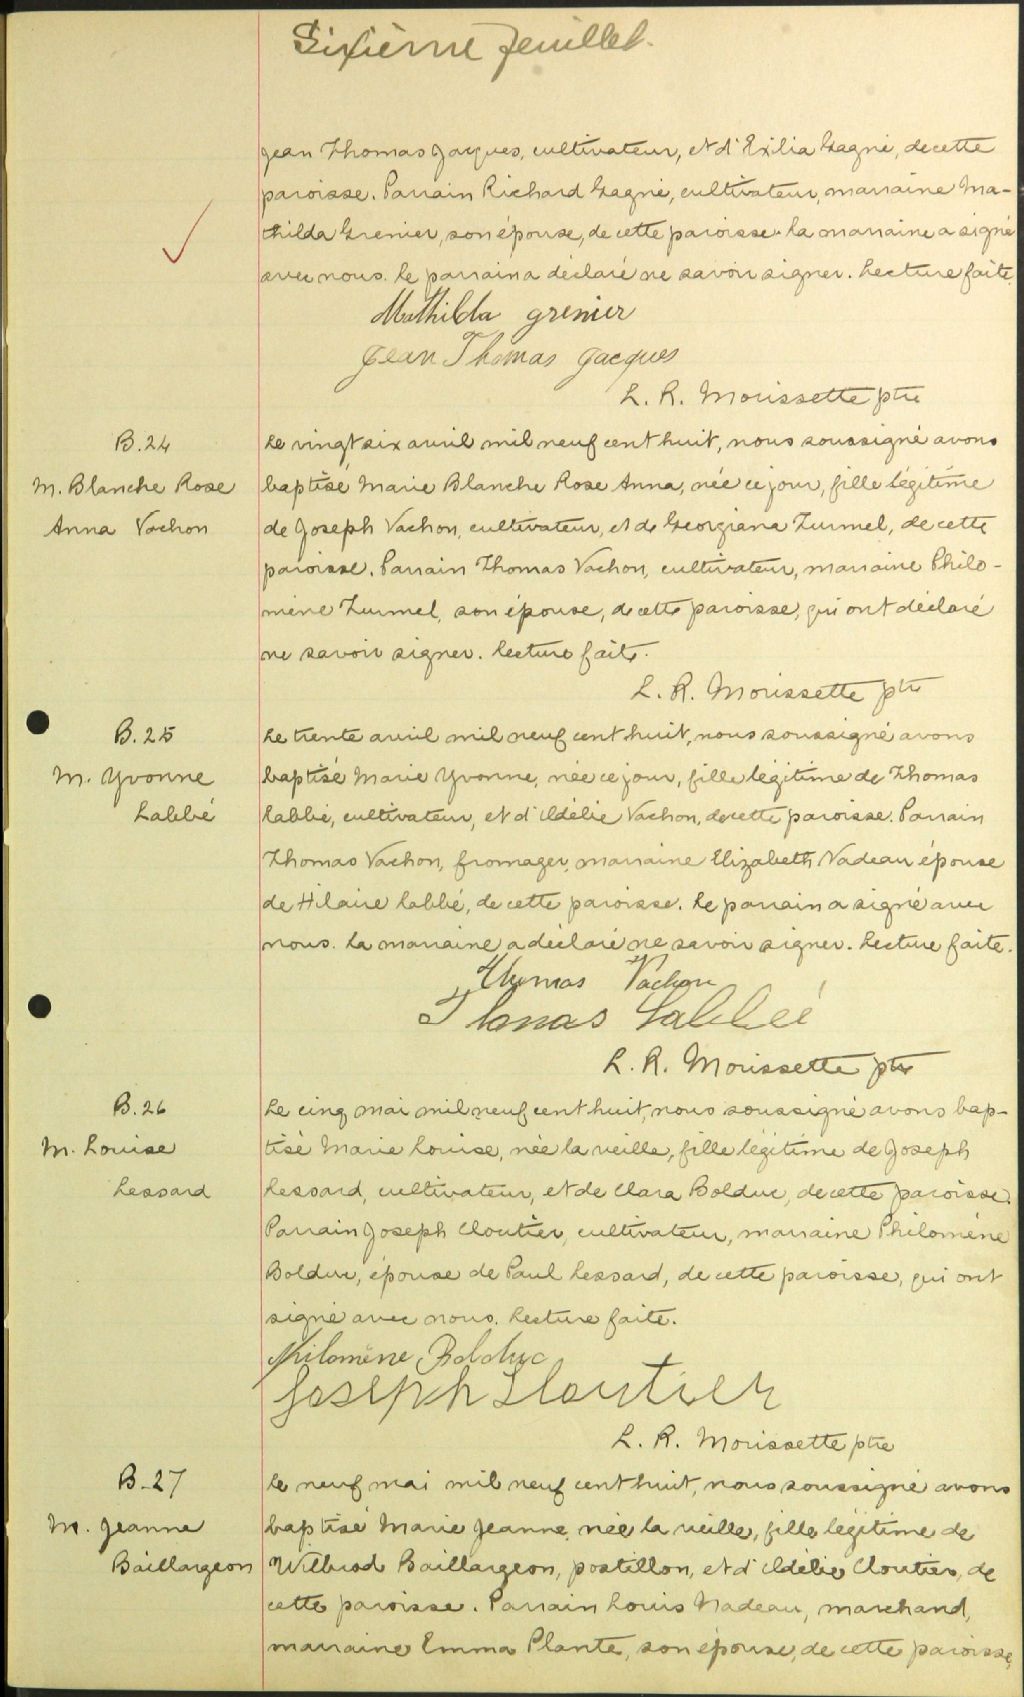 Sixième feuillet.
Jean Thomas Jacques, cultivateur, et d'Exilia Gagné, de cette
paroisse. Parrain Richard Gagné, cultivateur, marraine Ma-
thilda Grenier, son épouse, de cette paroisse. La marraine a signé
avec nous. Le parrain a déclaré ne savoir signer. Lecture faite.
Mathilda grenier
Jean Thomas Jacques
L. R. Morissette ptre
B. 24
M. Blanche Rose
Anna Vachon
Le vingt six avril mil neuf cent huit, nous soussigné avons
baptisé Marie Blanche Rose Anna, née ce jour, fille légitime
de Joseph Vachon, cultivateur, et de Georgiana Turmel, de cette
paroisse. Parrain Thomas Vachon, cultivateur, marraine Philo-
mène Turmel, son épouse, de cette paroisse, qui ont déclaré
ne savoir signer. Lecture faite.
L. R. Morissette ptre
B. 25
M. Yvonne
Labbé
Le trente avril mil neuf cent huit, nous soussigné avons
baptisé Marie Yvonne, née ce jour, fille légitime de Thomas
Labbé, cultivateur, et d'Adélie Vachon, de cette paroisse. Parrain
Thomas Vachon, fromager, marraine Elizabeth Nadeau épouse
de Hilaire Labbé, de cette paroisse. Le parrain a signé avec
nous. La marraine a déclaré ne savoir signer. Lecture faite.
Thomas Vachon
Thomas Labbé
L. R. Morissette ptre
B. 26
M. Louise
Lessard
Le cinq mai mil neuf cent huit, nous soussigné avons bap-
tisé Marie Louise, née la veille, fille légitime de Joseph
Lessard, cultivateur, et de Clara Bolduc, de cette paroisse.
Parrain Joseph Cloutier, cultivateur, marraine Philomène
Bolduc, épouse de Paul Lessard, de cette paroisse, qui ont
signé avec nous. Lecture faite.
Philomène Bolduc
Joseph Cloutier
L. R. Morissette ptre
B. 27
M. Jeanne
Baillargeon
Le neuf mai mil neuf cent huit, nous soussigné avons
baptisé Marie Jeanne, née la veille, fille légitime de
Wilbrod Baillargeon, postillon, et d'Adélie Cloutier, de
cette paroisse. Parrain Louis Nadeau, marchand,
marraine Emma Plante, son épouse, de cette paroisse,